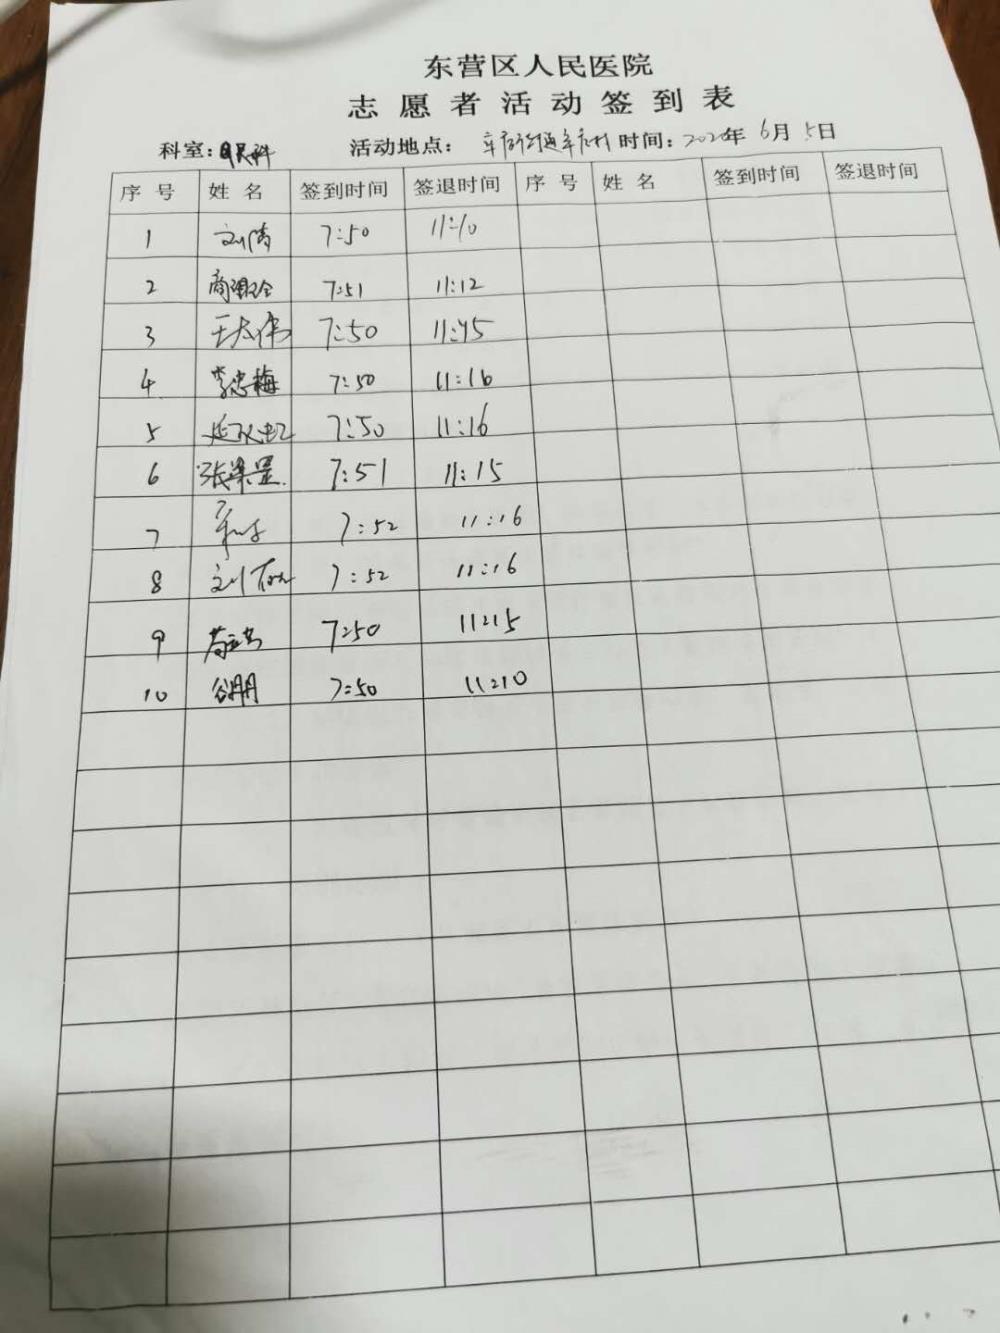 东营区人民医院
志愿者活动签到表
科室：眼科 活动地点： 时间：2020年6月5日
序号 姓名 签到时间 签退时间 序号 姓名 签到时间 签退时间
1 刘倩 7:50 11:10
2 7:51 11:12
3 王大伟 7:50 11:15
4 李忠梅 7:50 11:16
5 7:50 11:16
6 7:51 11:15
7 7:52 11:16
8 7:52 11:16
9 7:50 11:15
10 谷朋 7:50 11:10